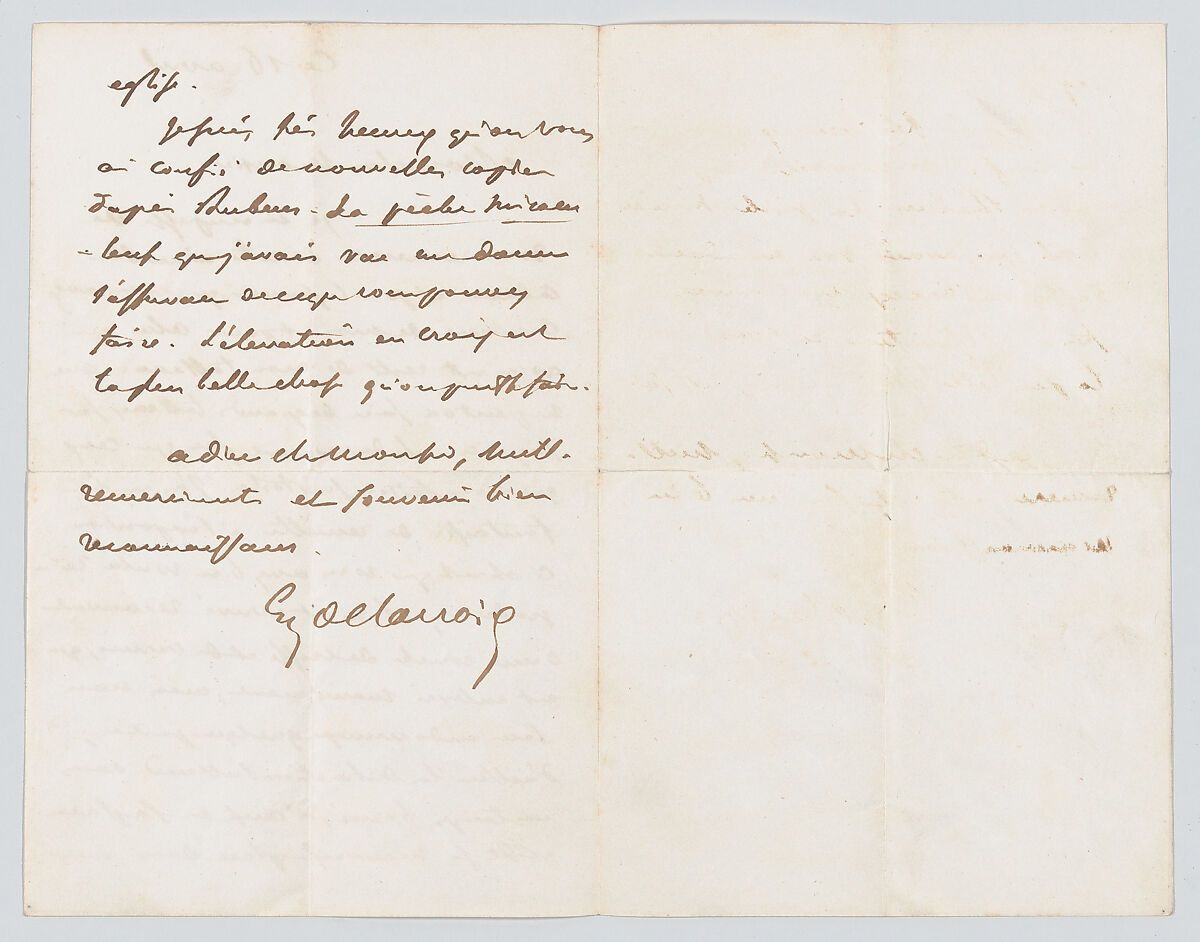 eglise.
Je suis très heureux qu'on vous
ai confié de nouvelles copies
d'après Rubens. La pêche miracu
-leuse que j'avais vue me donne
l'assurance de ce que vous pouvez
faire. L'élévation en croix est
la plus belle chose qu'on puisse faire.
adieu cher Monsieur, mille
remerciments et souvenir bien
reconnaissans.
Eug Delacroix